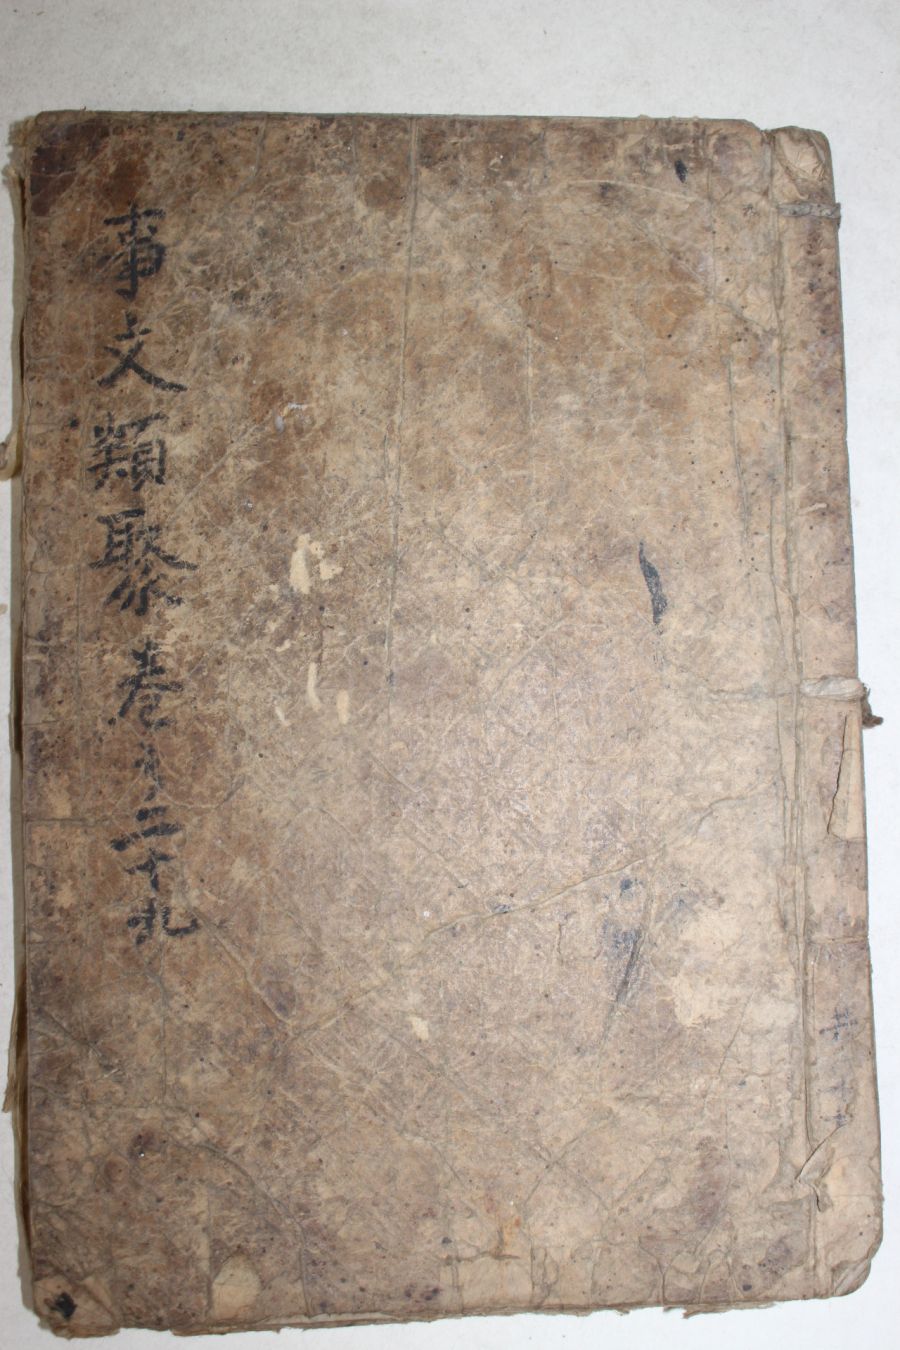 事文類聚卷之二十九